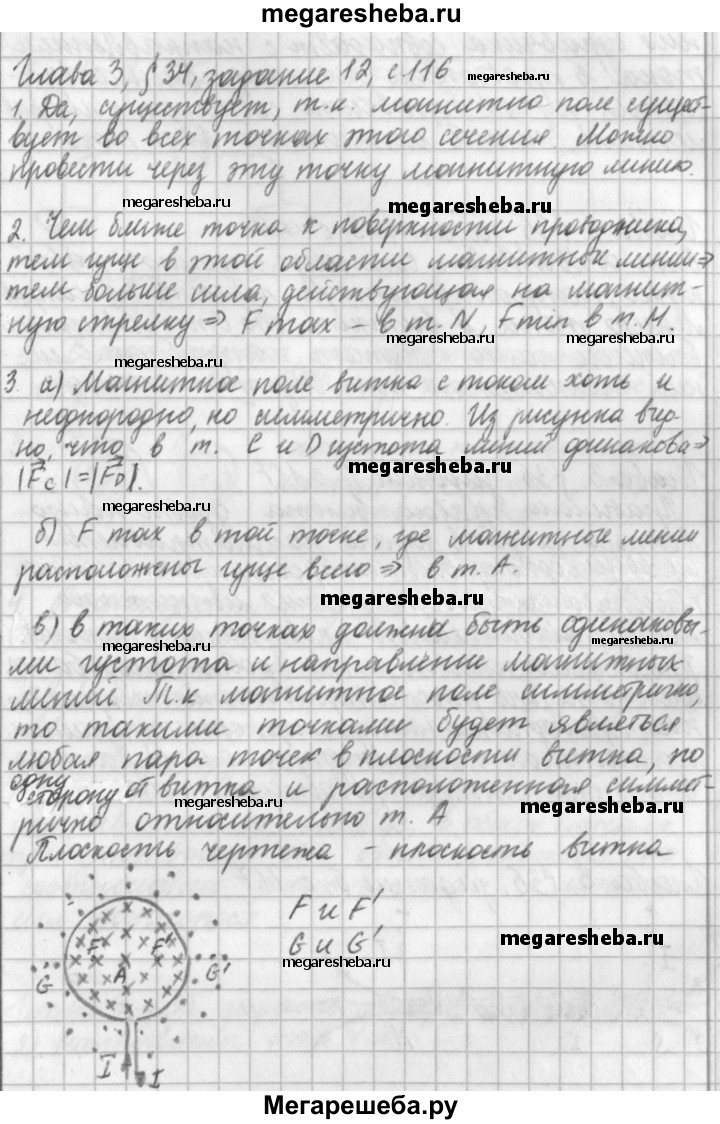 megaresheba.ru
Глава 3, § 34, задание 12, с 116 megaresheba.ru
1. Да, существует, т.к. магнитно поле сущест-
вует во всех точках этого сечения. Можно
провести через эту точку магнитную линию.
megaresheba.ru megaresheba.ru
2. Чем ближе точка к поверхности проводника,
тем гуще в этой области магнитные линии ⇒
тем больше сила, действующая на магнит-
ную стрелку ⇒ F max – в т. N, Fmin в т. М.
megaresheba.ru megaresheba.ru megaresheba.ru
3. а) Магнитное поле витка с током хоть и
неоднородно, но симметрично. Из рисунка вид-
но, что в т. С и D густота линий одинакова ⇒
megaresheba.ru
|Fc| = |FD|.
megaresheba.ru
б) F max в той точке, где магнитные линии
расположены гуще всего ⇒ в т. А.
megaresheba.ru megaresheba.ru
в) в таких точках должна быть одинаковы-
megaresheba.ru megaresheba.ru
ми густота и направление магнитных
линий. Т.к магнитное поле симметрично,
то такими точками будет являться
любая пара точек в плоскости витка, по
одну
сторону от витка и расположенная симмет-
megaresheba.ru megaresheba.ru
рично относительно т. А
Плоскость чертежа – плоскость витка
F и F'
G и G'
megaresheba.ru megaresheba.ru
F F'
G A G'
I I
megaresheba.ru
Мегарешеба.ру